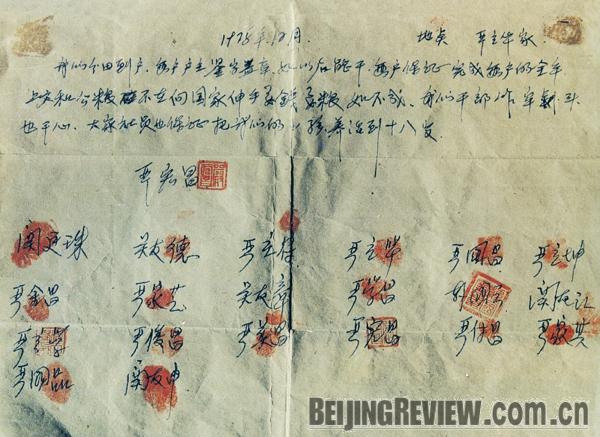 1978年12月 地点 严立华家
我们分田到户，每户户主签字盖章，如以后能干，每户保证完成每户的全年
上交和公粮，不在向国家伸手要钱要粮，如不成，我们干部作牢刹头
也干心，大家社员也保证把我们的小孩养活到十八岁。
严宏昌
关廷珠 关友德 严立符 严立华 严国昌 严立坤
严金昌 严家芝 关友章 严学昌 韩国云 关友江
严立学 严俊昌 严美昌 严宏昌 严付昌 严家其
严国品 关友申
BEIJINGREVIEW.com.cn